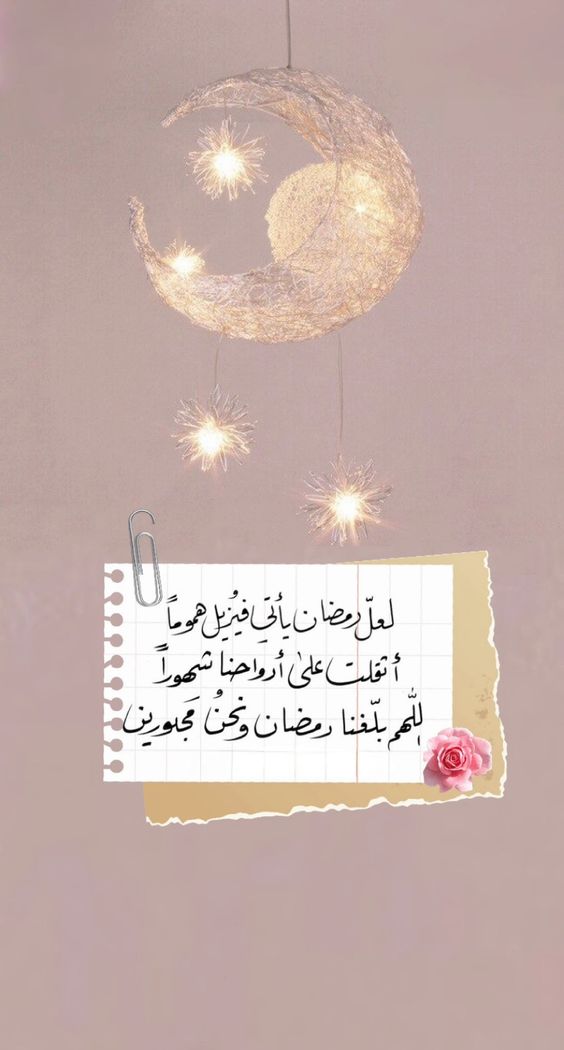 لعلّ رمضان يأتي فيُزيل هموماً
أثقلت على أرواحنا شهوراً
اللّهم بلّغنا رمضان ونحنُ مَجبورين